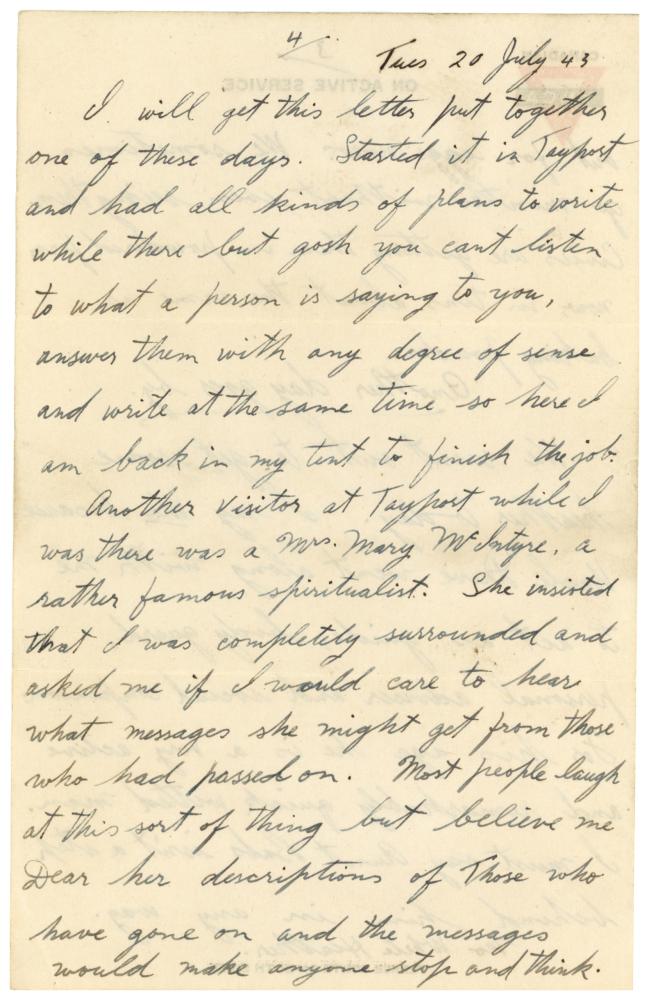 4/.
Tues 20 July 43
I will get this letter put together
one of these days. Started it in Tayport
and had all kinds of plans to write
while there but gosh you cant listen
to what a person is saying to you,
answer them with any degree of sense
and write at the same time so here I
am back in my tent to finish the job.
Another visitor at Tayport while I
was there was a Mrs. Mary McIntyre, a
rather famous spiritualist. She insisted
that I was completely surrounded and
asked me if I would care to hear
what messages she might get from those
who had passed on. Most people laugh
at this sort of thing but believe me
Dear her descriptions of Those who
have gone on and the messages
would make anyone stop and think.
ON ACTIVE SERVICE